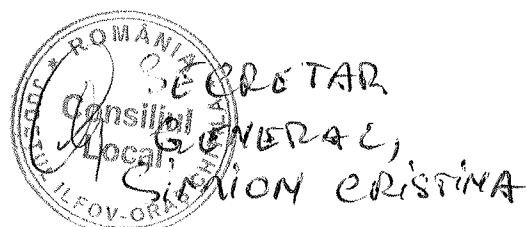 ★ ROMÂNIA ★
JUDEŢUL ILFOV-ORAŞ CHITILA
Consiliul
Local
SECRETAR
GENERAL,
SIMION CRISTINA